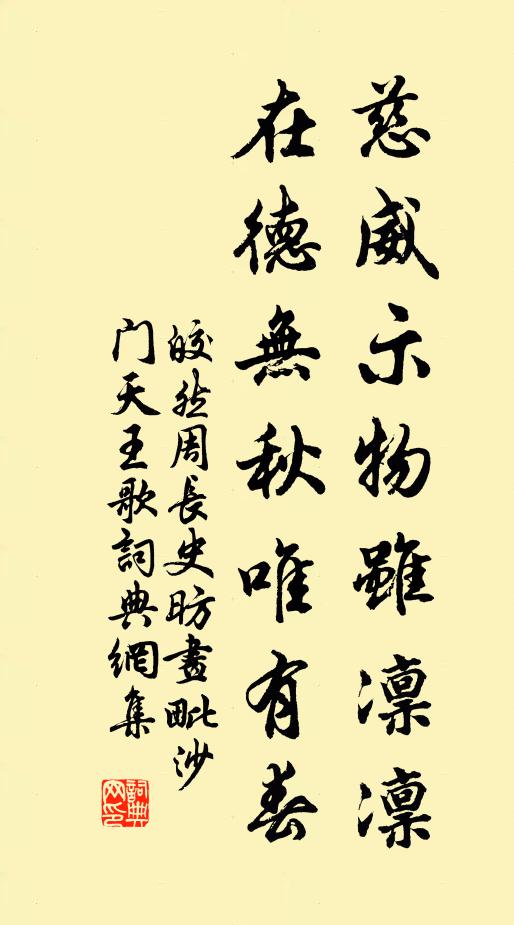 慈威示物雖凛凛
在德無秋唯有春
皎然周長史昉畫毗沙
门天王歌詞典網集
詞典网印